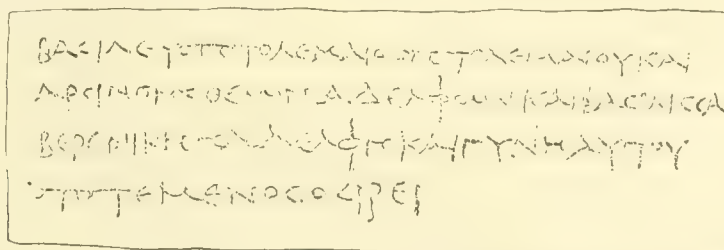 ΒΑCΙΛΕΥC ΠΤΟΛΕΜΑΙΟC ΠΤΟΛΕΜΑΙΟΥ ΚΑΙ
ΑΡCΙΝΟΗC ΘΕΩΝ ΑΔΕΛΦΩΝ ΚΑΙ ΒΑCΙΛΙCCΑ
ΒΕΡΕΝΙΚΗ ΑΔΕΛΦΗ ΚΑΙ ΓΥΝΗ ΑΥΤΟΥ
ΤΟ ΤΕΜΕΝΟC ΟCΙΡΕΙ